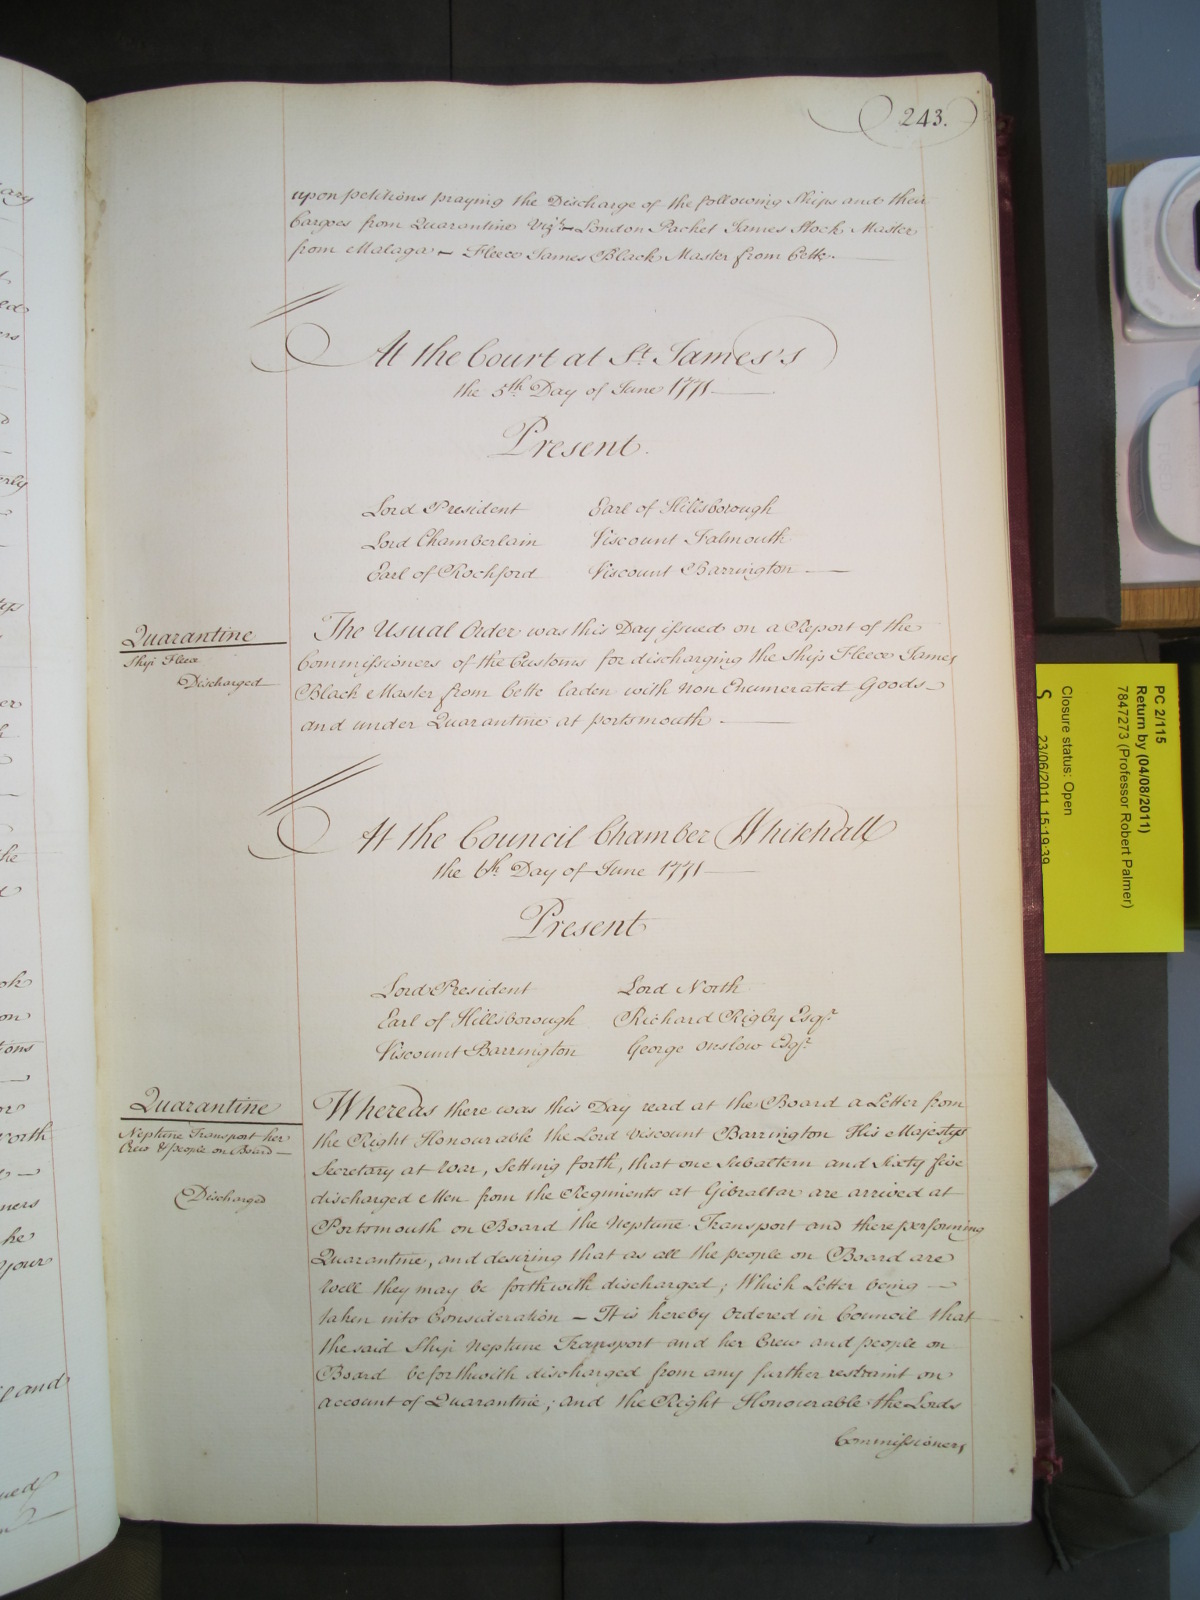 243.
upon petitions praying the Discharge of the following Ships and their
Cargoes from Quarantine Vizt. London Packet James Stock Master
from Malaga – Fleece James Black Master from Cette.
At the Court at St. James's
the 5th. Day of June 1771
Present.
Lord President Earl of Hillsborough
Lord Chamberlain Viscount Falmouth
Earl of Rochford Viscount Barrington
Quarantine
Ship Fleece
Discharged
The Usual Order was this Day issued on a Report of the
Commissioners of the Customs for discharging the Ship Fleece James
Black Master from Cette laden with Non Enumerated Goods
and under Quarantine at portsmouth.
At the Council Chamber Whitehall
the 6th. Day of June 1771
Present
Lord President Lord North
Earl of Hillsborough Richard Rigby Esqr.
Viscount Barrington George Onslow Esqr.
Quarantine
Neptune Transport her
Crew & people on Board
Discharged
Whereas there was this Day read at the Board a Letter from
the Right Honourable the Lord Viscount Barrington His Majestys
Secretary at War, Setting forth, that one Subaltern and Sixty five
discharged Men from the Regiments at Gibraltar are arrived at
Portsmouth on Board the Neptune Transport and there performing
Quarantine, and desiring that as all the people on Board are
well they may be forthwith discharged; Which Letter being
taken into Consideration – It is hereby Ordered in Council that
the said Ship Neptune Transport and her Crew and people on
Board be forthwith discharged from any further restraint on
account of Quarantine; and the Right Honourable the Lords
Commissioners
PC 2/115
Return by (04/08/2011)
7847273 (Professor Robert Palmer)
Closure status: Open
S 23/06/2011 15:19:39